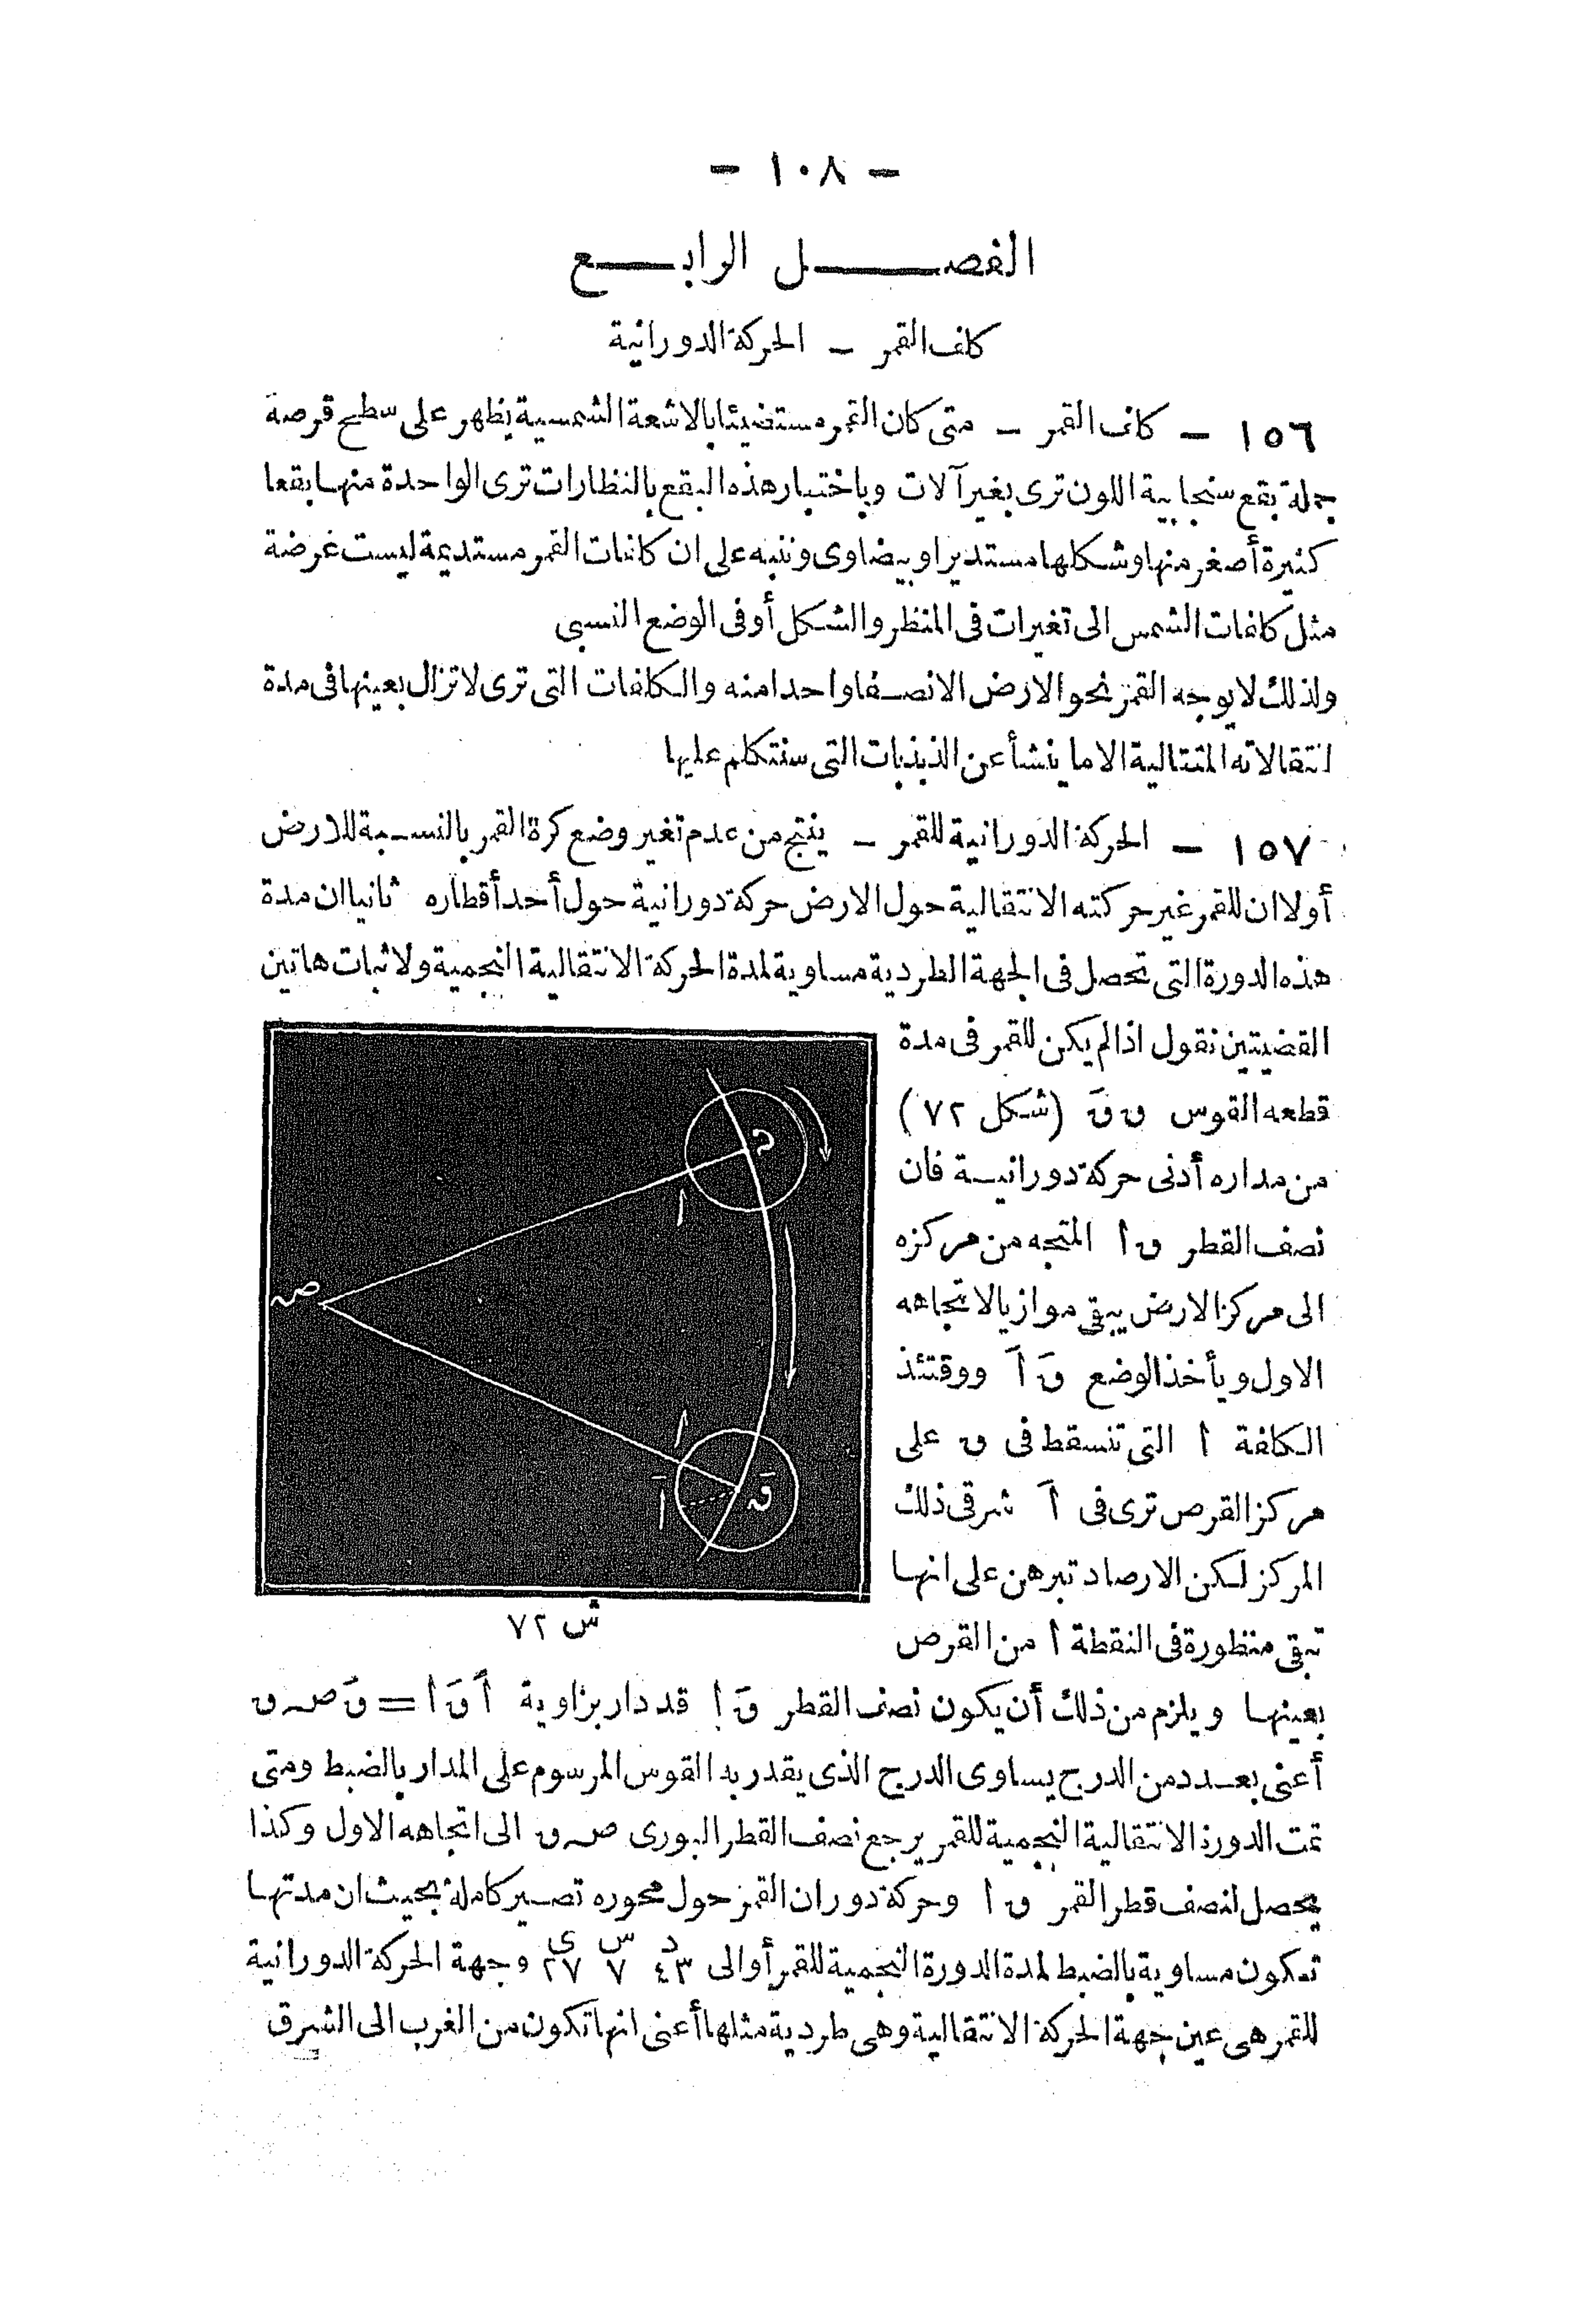 - ١٠٨ -
الفصل الرابع
كلف القمر - الحركة الدورانية
١٥٦ - كلف القمر - متى كان القمر مستضيئا بالاشعة الشمسية يظهر على سطح قرصه
جملة بقع سنجابية اللون ترى بغير آلات وباختبار هذه البقع بالنظارات ترى الواحدة منها بقعا
كثيرة أصغر منها وشكلها مستدير او بيضاوى وننبه على ان كلفات القمر مستديمة ليست غرضة
مثل كلفات الشمس الى تغيرات فى المنظر والشكل أو فى الوضع النسبى
ولذلك لا يوجه القمر نحو الارض الا نصفا واحدا منه والكلفات التى ترى لا تزال بعينها فى مدة
انتقالاته المتتالية الا ما ينشأ عن الذبذبات التى سنتكلم عليها
١٥٧ - الحركة الدورانية للقمر - ينتج من عدم تغير وضع كرة القمر بالنسبة للارض
أولا ان للقمر غير حركته الانتقالية حول الارض حركة دورانية حول أحد أقطاره ثانيا ان مدة
هذه الدورة التى تحصل فى الجهة الطردية مساوية لمدة الحركة الانتقالية النجمية ولاثبات هاتين
القضيتين نقول اذا لم يكن للقمر فى مدة
قطعه القوس ق قَ (شكل ٧٢)
من مداره أدنى حركة دورانية فان
نصف القطر ق أ المتجه من مركزه
الى مركز الارض يبقى موازيا لاتجاهه
الاول ويأخذ الوضع قَ أَ ووقتئذ
الكلفة أ التى تنسقط فى ق على
مركز القرص ترى فى أَ شرقى ذلك
المركز لكن الارصاد تبرهن على انها
تبقى منظورة فى النقطة أ من القرص
ص
ق
أ
أ
أَ
قَ
ش ٧٢
بعينها ويلزم من ذلك أن يكون نصف القطر قَ أ قد دار بزاوية أَ قَ أ = قَ ص ق
أعنى بعدد من الدرج يساوى الدرج الذى يقدر به القوس المرسوم على المدار بالضبط ومتى
تمت الدورة الانتقالية النجمية للقمر يرجع نصف القطر البورى ص ق الى اتجاهه الاول وكذا
يحصل لنصف قطر القمر ق أ وحركة دوران القمر حول محوره تصير كاملة بحيث ان مدتها
تكون مساوية بالضبط لمدة الدورة النجمية للقمر أو الى ٤٣ د ٧ س ٢٧ ى وجهة الحركة الدورانية
للقمر هى عين جهة الحركة الانتقالية وهى طردية مثلها أعنى انها تكون من الغرب الى الشرق